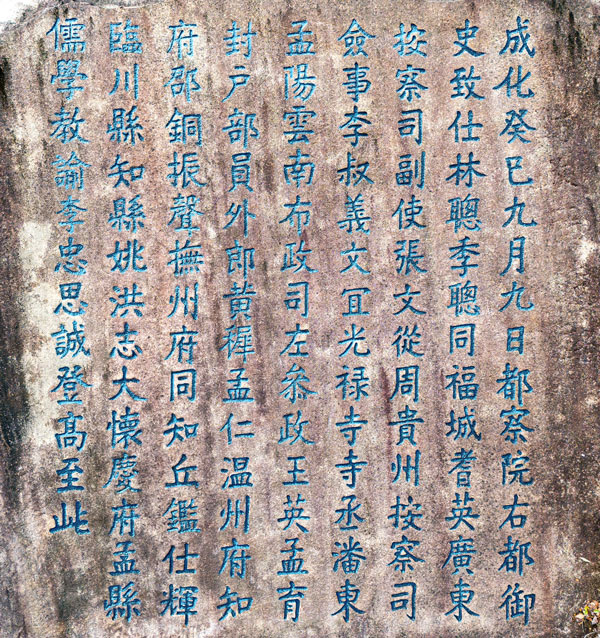 成化癸巳九月九日都察院右都御
史致仕林聰季聰同福城耆英廣東
按察司副使張文從周貴州按察司
僉事李叔義文冝光禄寺寺丞潘東
孟陽雲南布政司左叅政王英孟育
封戶部員外郎黄穉孟仁温州府知
府邵銅振聲撫州府同知丘鑑仕輝
臨川縣知縣姚洪志大懷慶府孟縣
儒學教諭李忠思誠登髙至此